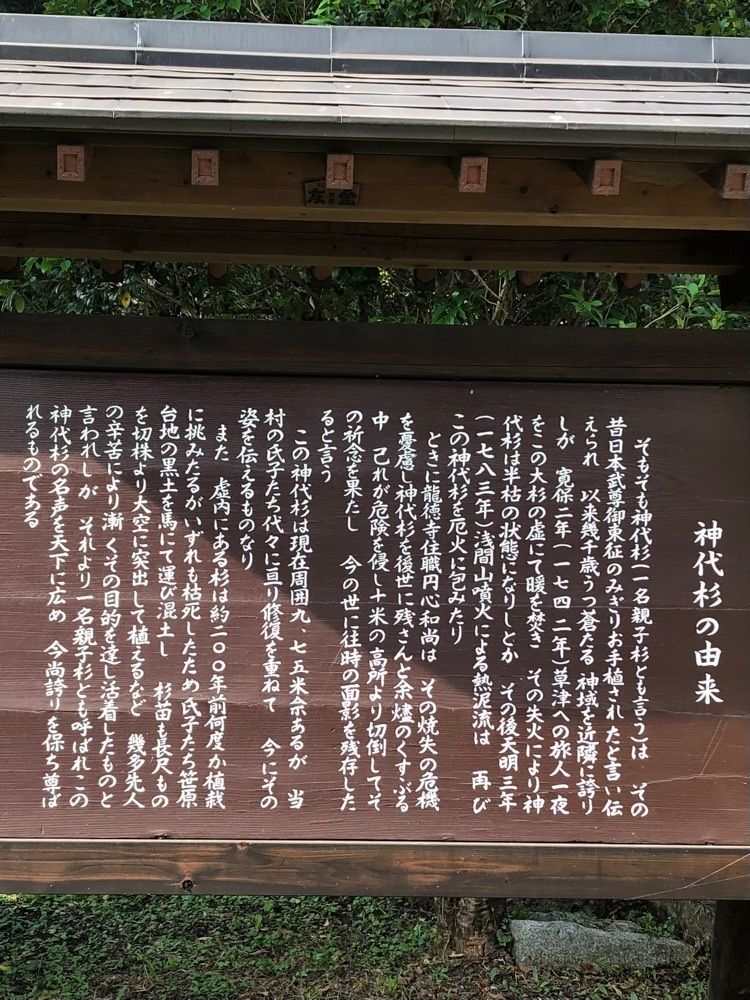 神代杉の由来
そもそも神代杉(一名親子杉とも言う)は その
昔日本武尊御東征のみぎりお手植されたと言い伝
えられ 以来幾千歳うつ蒼たる 神域を近隣に誇り
しが 寛保二年(一七四二年)草津への旅人一夜
をこの大杉の虚にて暖を焚き その失火により神
代杉は半枯の状態になりしとか その後天明三年
(一七八三年)浅間山噴火による熱泥流は 再び
この神代杉を厄火に包みたり
ときに龍徳寺住職円心和尚は その焼失の危機
を憂慮し神代杉を後世に残さんと余燼のくすぶる
中 己れが危険を侵し十米の高所より切倒してそ
の祈念を果たし 今の世に往時の面影を残存した
ると言う
この神代杉は現在周囲九、七五米余あるが 当
村の氏子たち代々に亘り修復を重ねて 今にその
姿を伝えるものなり
また 虚内にある杉は約二〇〇年前何度か植栽
に挑みたるがいずれも枯死したため氏子たち笹原
台地の黒土を馬にて運び混土し 杉苗も長尺もの
を切株より大空に突出して植えるなど 幾多先人
の辛苦により漸くその目的を達し活着したものと
言われしが それより一名親子杉とも呼ばれこの
神代杉の名声を天下に広め 今尚誇りを保ち尊ば
れるものである